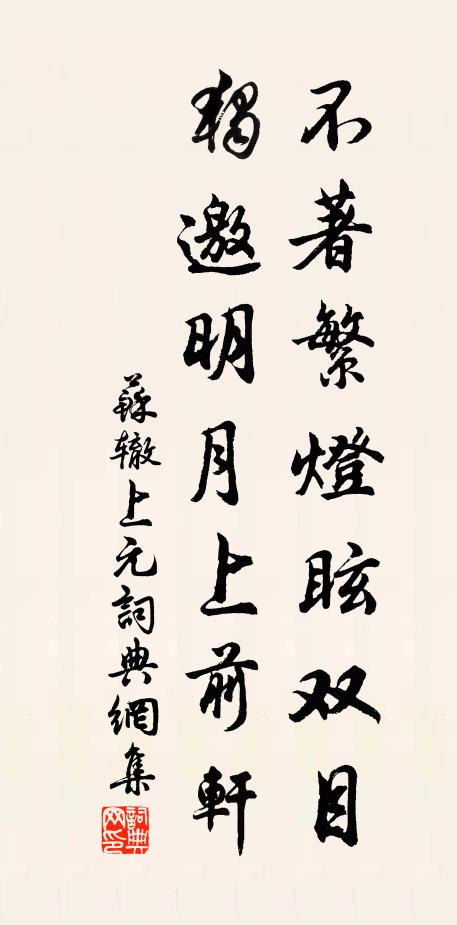 不著繁燈眩双目
獨邀明月上前軒
蘇辙上元詞典網集
詞典网印